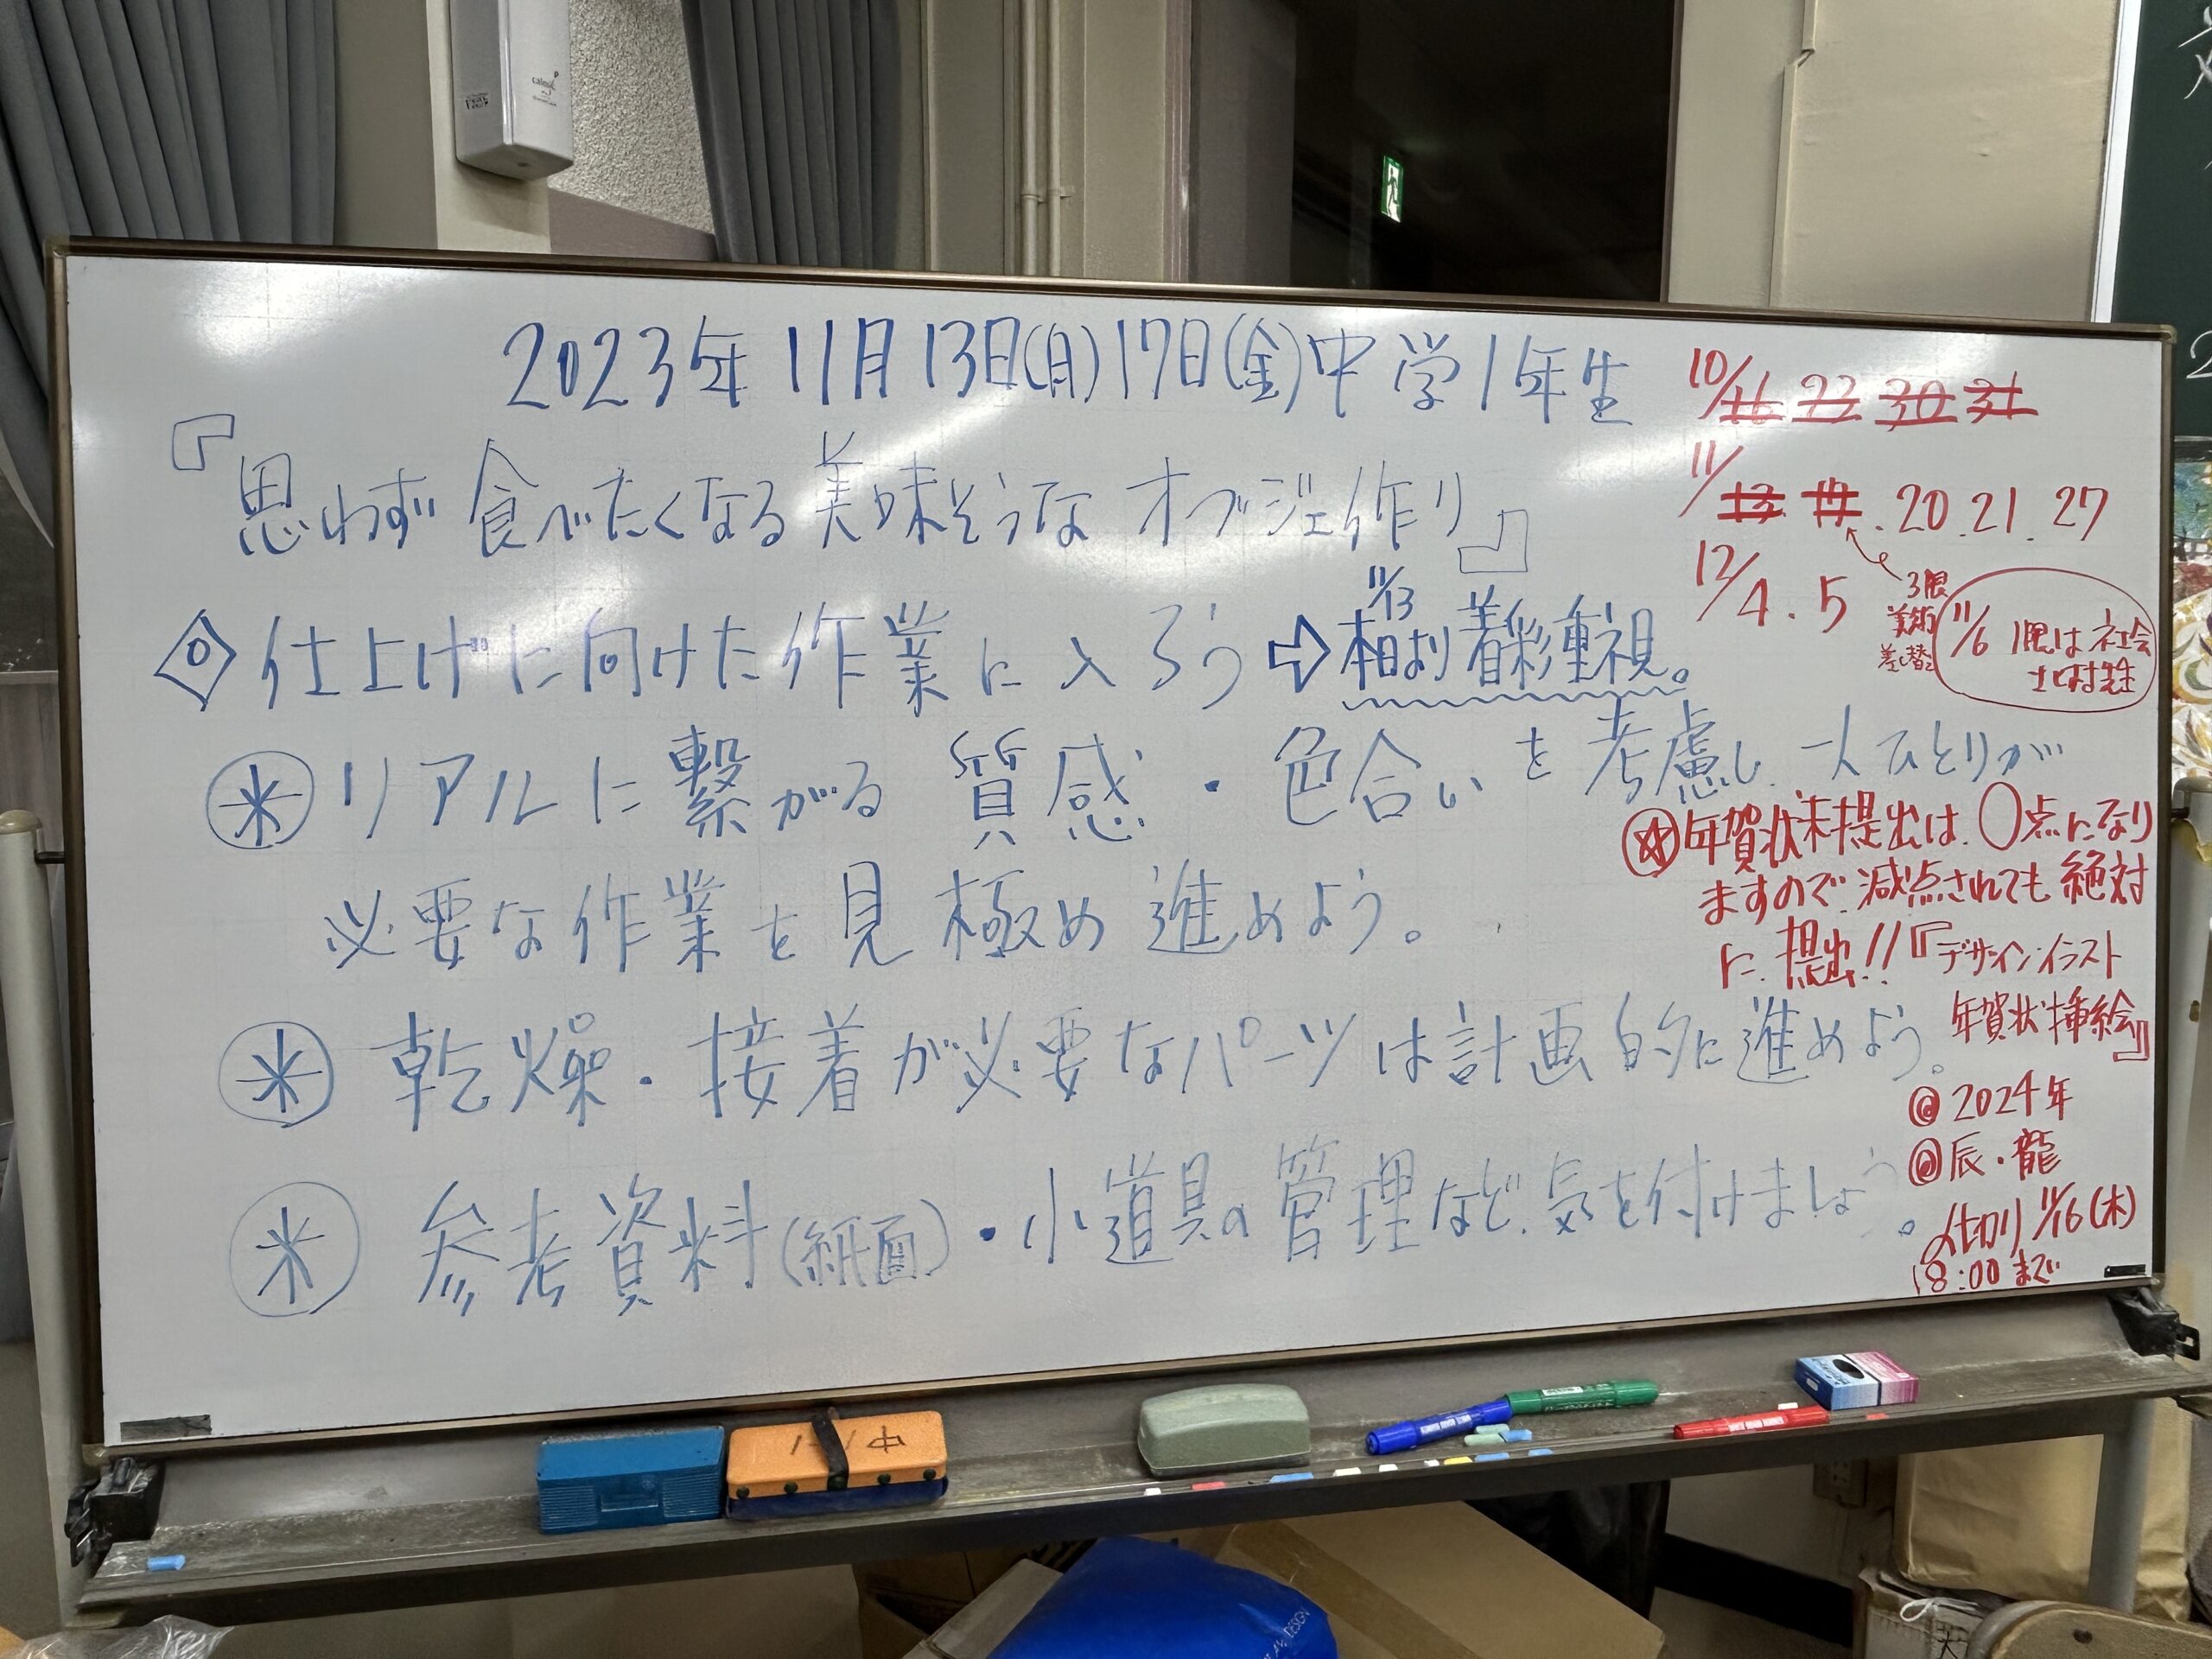 2023年 11月 13日(月) 17日(金) 中学1年生
『思わず 食べたくなる 美味そうな オブジェ作り』
仕上げに向けた作業に入ろう ⇨ 11/13 本日より 着彩重視。
※ リアルに 繋がる 質感・色合いを考慮し 一人ひとりが
必要な作業を見極め 進めよう。
※ 乾燥・接着が必要なパーツは計画的に進めよう。
※ 参考資料(紙面)・小道具の管理など、気を付けましょう。
10/16 23 30 31
11/13 . 20 . 21 . 27
12/4 . 5
3限
美術
差し替え
11/6 1限は 社会
年賀状未提出は、0点になり
ますので、減点されても 絶対
に、提出!!『デザイン・イラスト
年賀状 挿絵』
2024年
辰・龍
〆切り 11/16(木)
18:00 まで
1-1 中